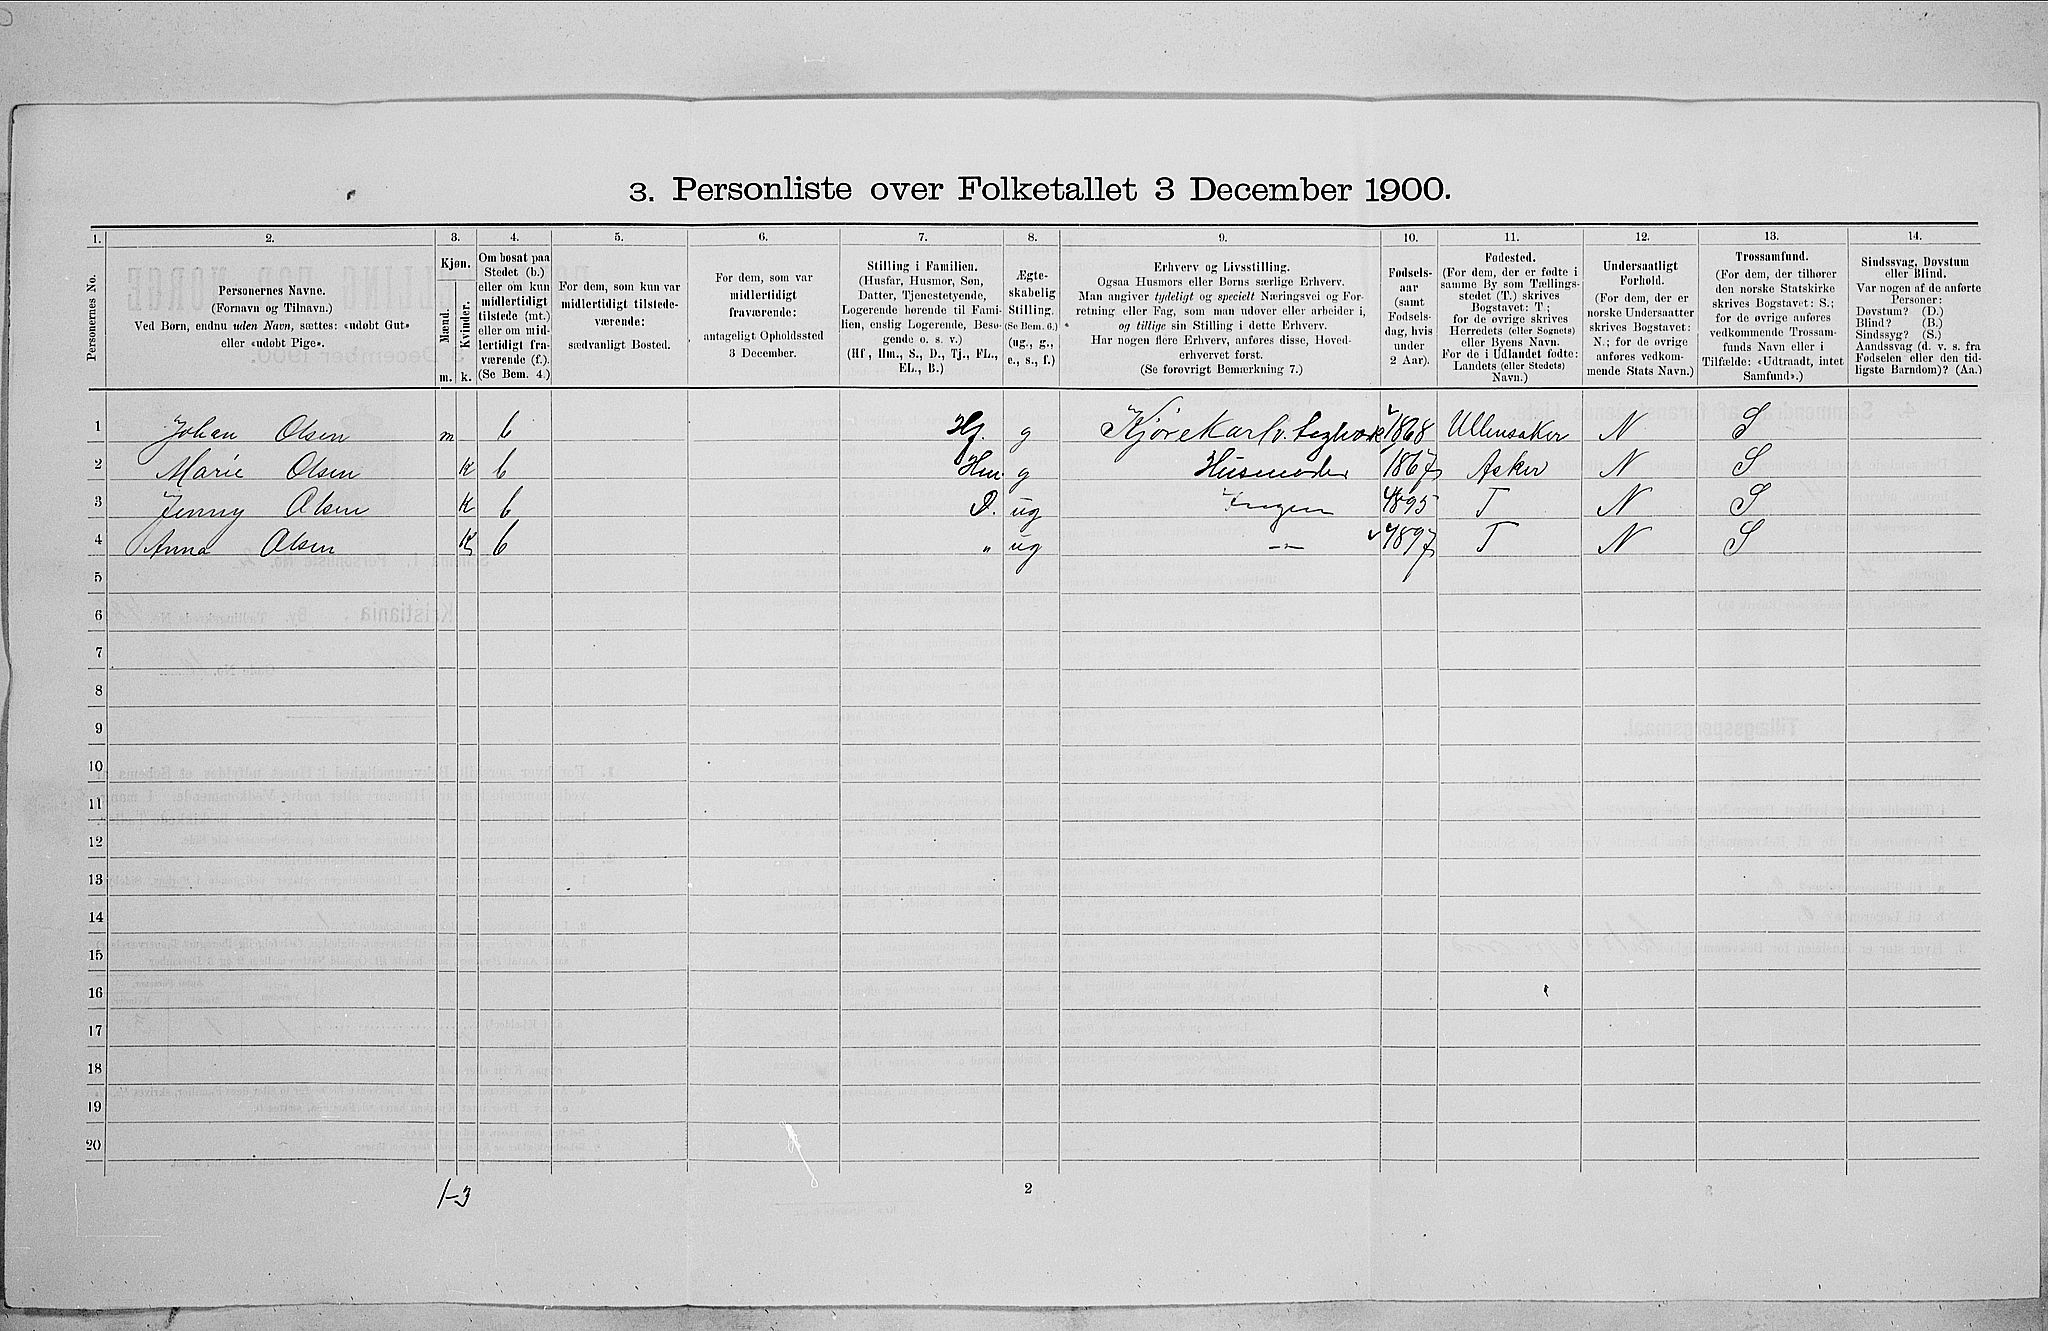 3. Personliste over Folketallet 3 December 1900.
1. 2. 3. 4. 5. 6. 7. 8. 9. 10. 11. 12. 13. 14.
Personernes No.
Personernes Navne.
(Fornavn og Tilnavn.)
Ved Børn, endnu uden Navn, sættes: «udøbt Gut»
eller «udøbt Pige».
Kjøn.
Mænd.
Kvinder.
m. k.
Om bosat paa
Stedet (b.)
eller om kun
midlertidigt
tilstede (mt.)
eller om mid-
lertidigt fra-
værende (f.).
(Se Bem. 4.)
For dem, som kun var
midlertidigt tilstede-
værende:
sædvanligt Bosted.
For dem, som var
midlertidigt
fraværende:
antageligt Opholdssted
3 December.
Stilling i Familien.
(Husfar, Husmor, Søn,
Datter, Tjenestetyende,
Logerende hørende til Fami-
lien, enslig Logerende, Besø-
gende o. s. v.)
(Hf, Hm., S., D., Tj., FL.,
EL., B.)
Ægte-
skabelig
Stilling.
(Se Bem. 6.)
(ug., g.,
e., s., f.)
Erhverv og Livsstilling.
Ogsaa Husmors eller Børns særlige Erhverv.
Man angiver tydeligt og specielt Næringsvei og For-
retning eller Fag, som man udøver eller arbeider i,
og tillige sin Stilling i dette Erhverv.
Har nogen flere Erhverv, anføres disse, Hoved-
erhvervet først.
(Se forøvrigt Bemærkning 7.)
Fødsels-
aar
(samt
Fødsels-
dag, hvis
under
2 Aar).
Fødested.
(For dem, der er fødte i
samme By som Tællings-
stedet (T.) skrives
Bogstavet: T;
for de øvrige skrives
Herredets (eller Sognets)
eller Byens Navn.
For de i Udlandet fødte:
Landets (eller Stedets)
Navn.)
Undersaatligt
Forhold.
(For dem, der er
norske Undersaatter
skrives Bogstavet:
N.; for de øvrige
anføres vedkom-
mende Stats Navn.)
Trossamfund.
(For dem, der tilhører
den norske Statskirke
skrives Bogstavet: S.;
for de øvrige anføres
vedkommende Trossam-
funds Navn eller i
Tilfælde: «Udtraadt, intet
Samfund».)
Sindssvag, Døvstum
eller Blind.
Var nogen af de anførte
Personer:
Døvstum? (D.)
Blind? (B.)
Sindssyg? (S.)
Aandssvag (d. v. s. fra
Fødselen eller den tid-
ligste Barndom)? (Aa.)
1 Johan Olsen m b Hf. g Kjørekarl v. 1868 Ullensaker N S
2 Marie Olsen K b Hm. g Husmoder 1867 Asker N S
3 Jenny Olsen K b D. ug Ingen 1895 T N S
4 Anna Olsen K b " ug — 1897 T N S
5
6
7
8
9
10
11
12
13
14
15
16
17
18
19
20
1-3
2